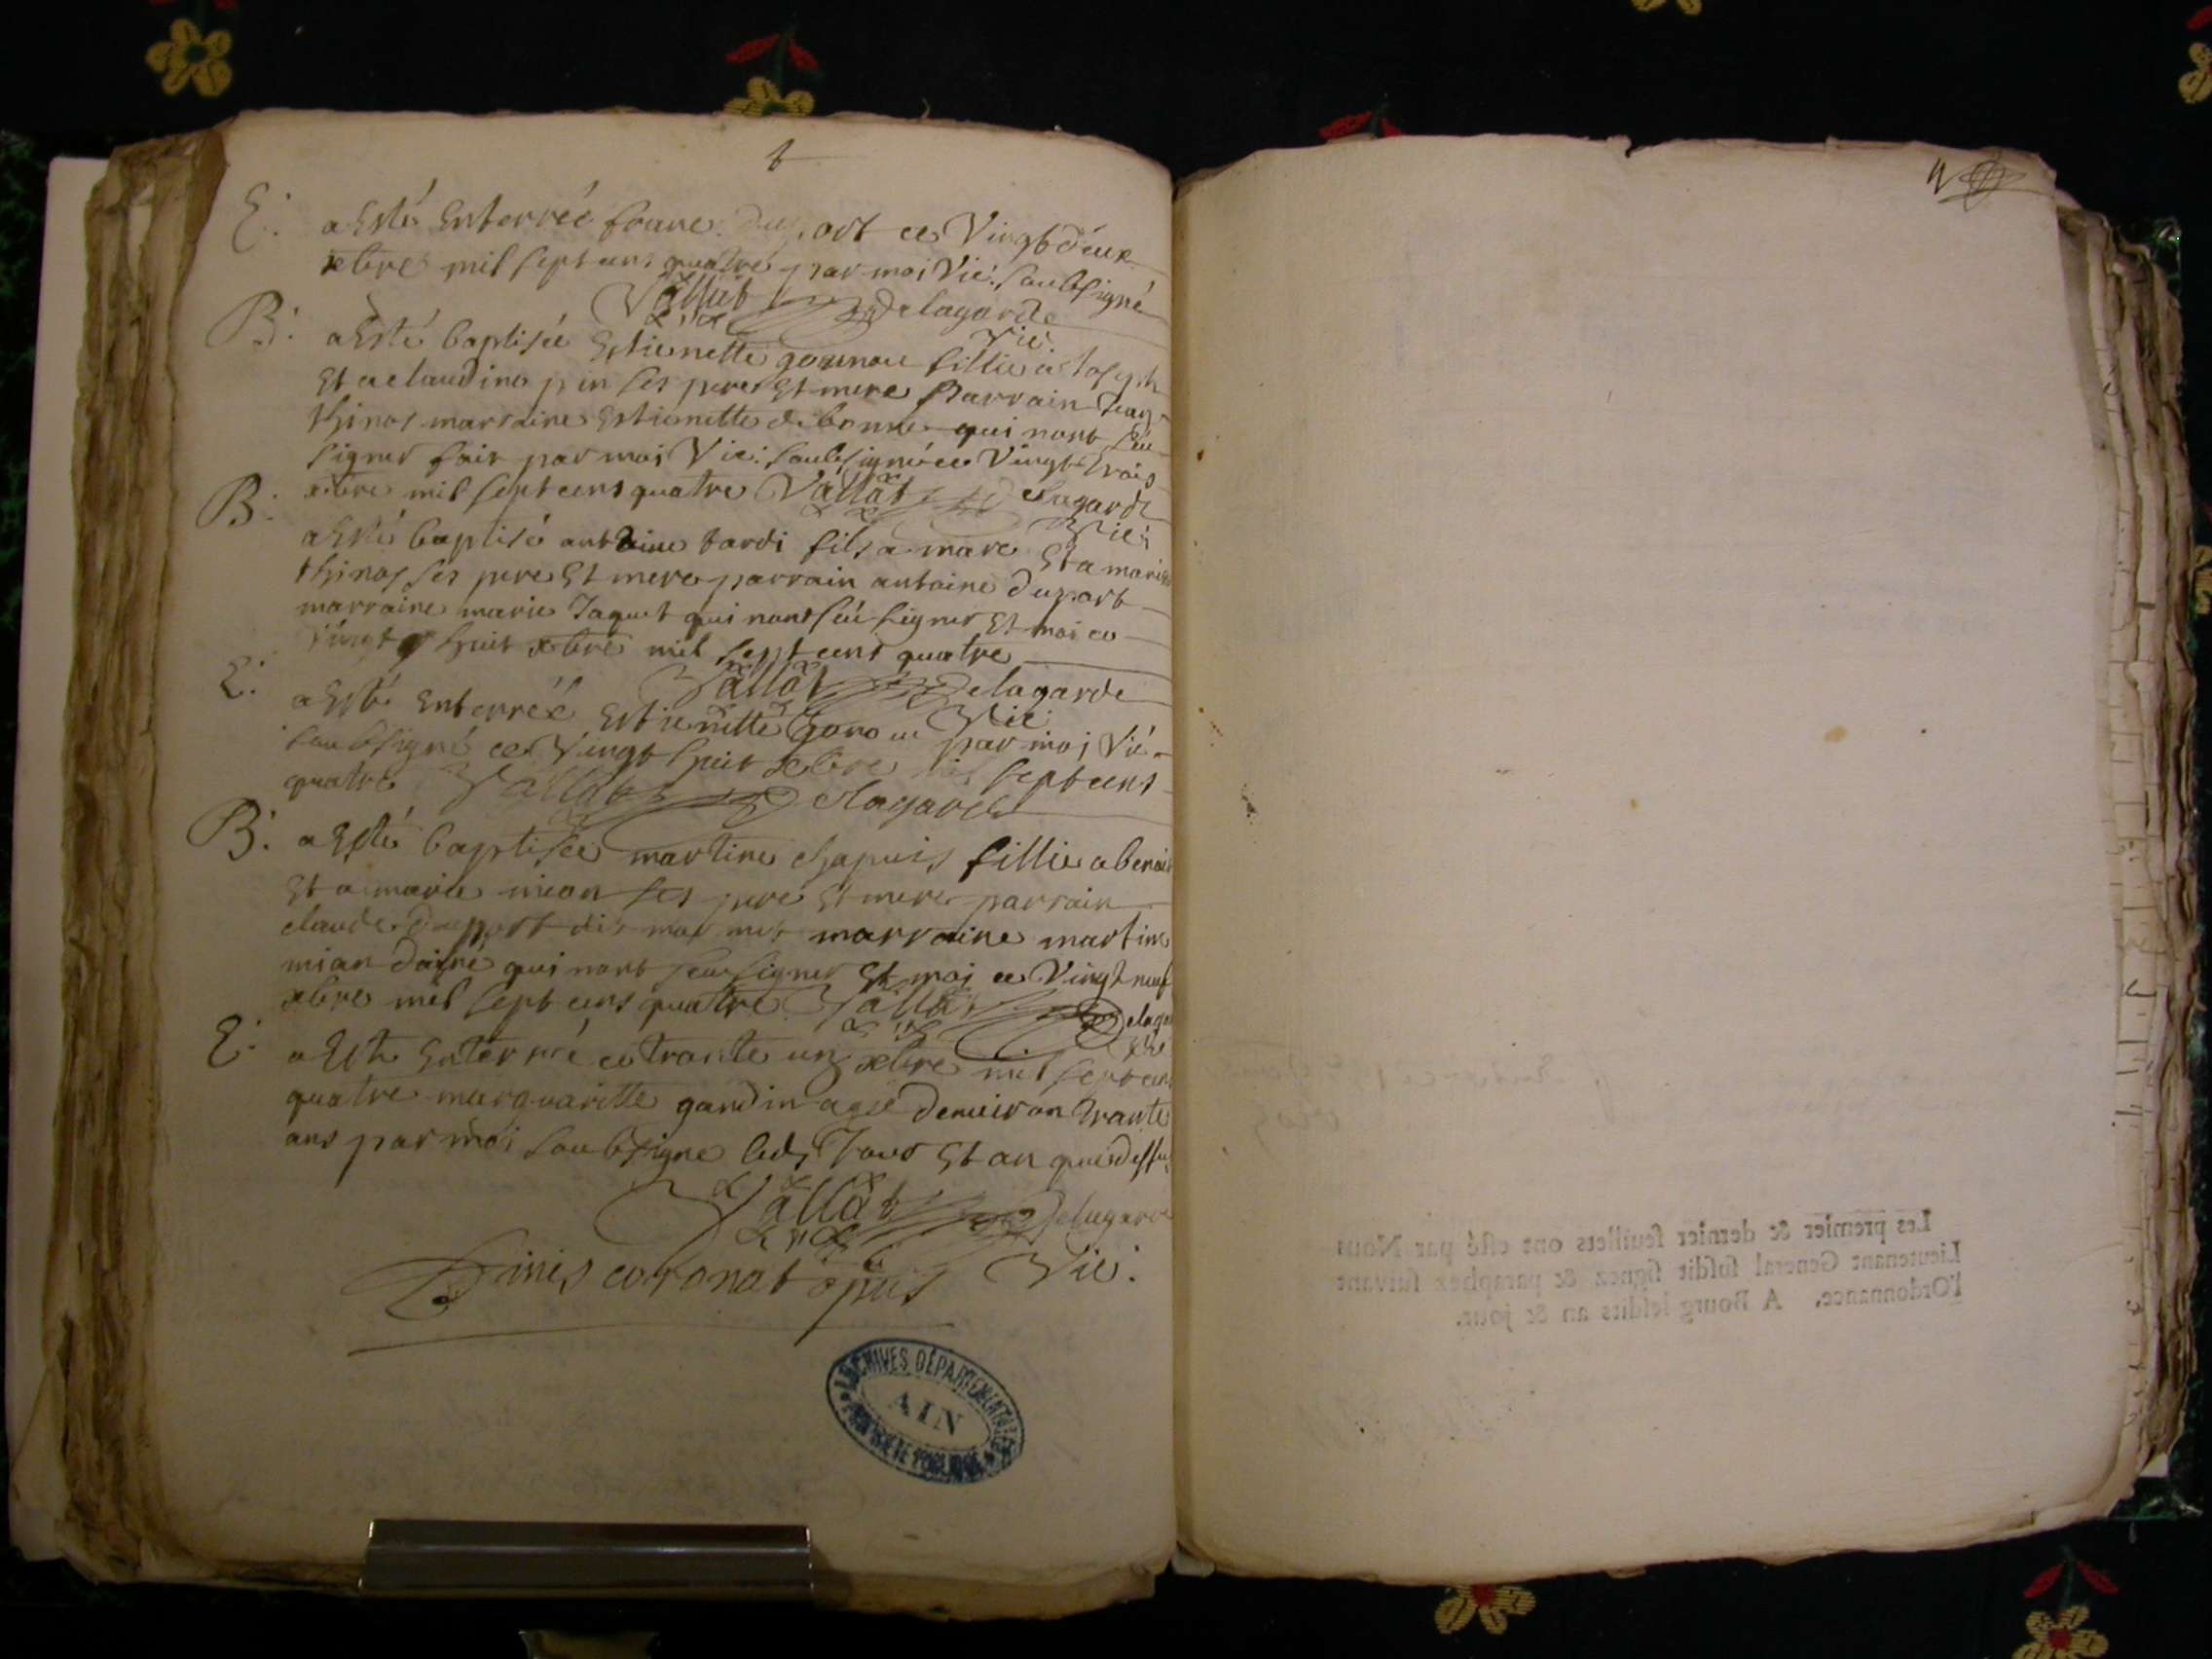 E. a esté enterrée duport ce Vingt deux
xbre mil sept cens quatre par moi Vic. soubsigné
Vallat Delagarde
Vic.
B. a esté baptisée Estienette gonnou fillie a Joseph
Et a claudine pin ses pere Et mere parrain Jean
thinos marraine Estienette debonne qui nont sceu
signer fait par moi Vic: soubsigné ce Vingt trois
xbre mil sept cens quatre Vallat Delagarde
Vic:
B. a esté baptisé antoine tardi fils a marc Et a marie
thinos ses pere Et mere parrain antoine duport
marraine marie Jaquet qui nont sceu signer Et moi ce
vingt huit xbre mil sept cens quatre
Vallat Delagarde
Vic.
E. a esté enterrée Estienette par moi Vic.
soubsigné ce Vingt huit xbre mil sept cens
quatre Vallat Delagarde
B. a esté baptisée martine chapuis fillie a benoit
Et a marie mion ses pere Et mere parrain
claude duport dit marraine martine
qui nont sceu signer Et moi ce Vingt neuf
xbre mil sept cens quatre Vallat Delaga
E. a esté enterré ce trante un xbre mil sept cens
quatre marguaritte gandin agée denviron trante
ans par moi soubsigne Jour Et an que dessus
Vallat Delagarde
Vic.
Finis coronat opus
ARCHIVES DÉPARTEMENTALES
AIN
PROPRIÉTÉ PUBLIQUE
Les premier & dernier feuillets ont esté par Nous
Lieutenant General susdit signez & paraphez suivant
l'Ordonnance. A Bourg lesdits an & jour.